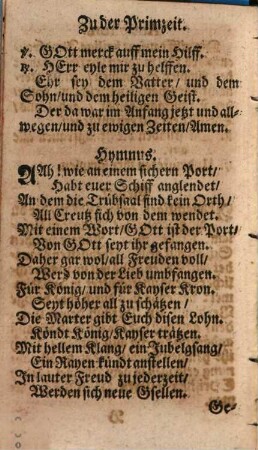 Zu der Primzeit.
℣. GOtt merck auff mein Hilff.
℟. HErr eyle mir zu helffen.
Ehr sey dem Vatter/ und dem
Sohn/ und dem heiligen Geist.
Der da war im Anfang jetzt und all-
wegen/ und zu ewigen Zeiten/ Amen.
Hymnus.
AAh! wie an einem sichern Port/
Habt euer Schiff anglendet/
An dem die Trübsaal find kein Orth/
All Creutz sich von dem wendet.
Mit einem Wort/ GOtt ist der Port/
Von GOtt seyt ihr gefangen.
Daher gar wol/ all Freuden voll/
Werd von der Lieb umbfangen.
Für König/ und für Kayser Kron.
Seyt höher all zu schätzen/
Die Marter gibt Euch disen Lohn.
Köndt König/ Kayser trätzen.
Mit hellem Klang/ ein Jubelgsang/
Ein Rayen kündt anstellen/
In lauter Freud zu jederzeit/
Werden sich neue Gsellen.
Ge-